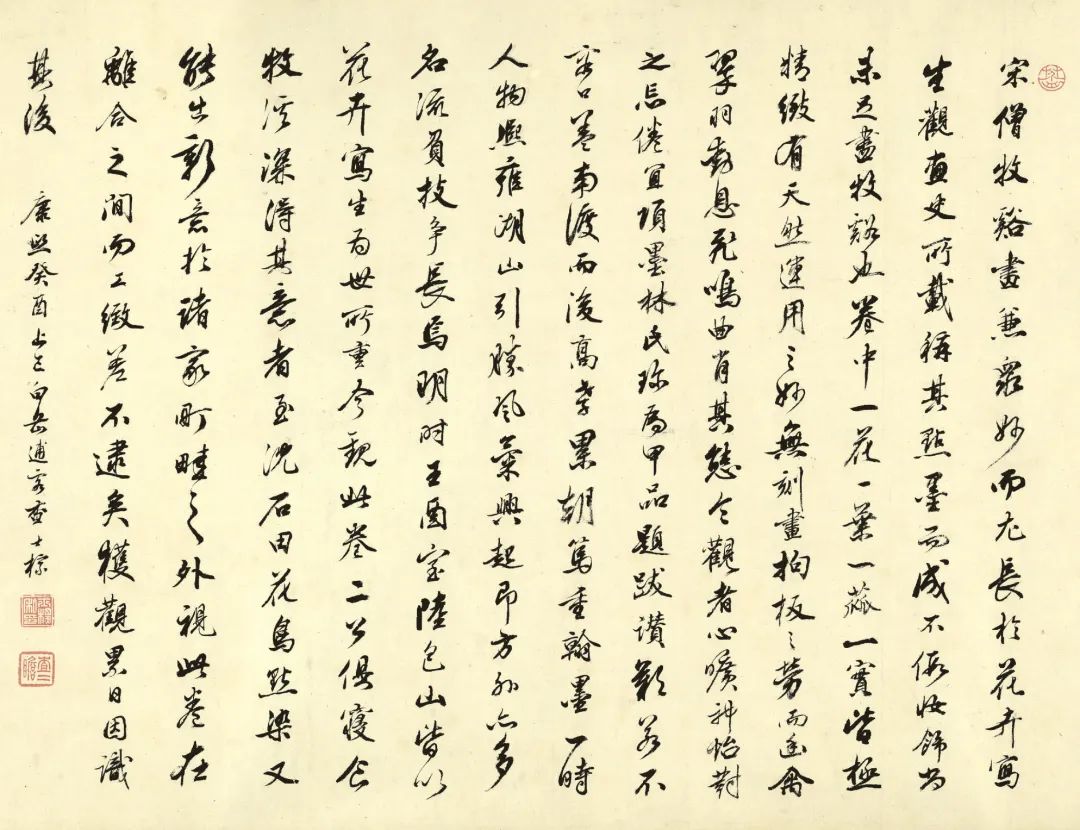 宋僧牧谿畫兼衆妙而尤長於花卉寫
生觀畫史所載稱其點墨而成不假妝飾尚
未足盡牧谿也卷中一花一葉一蓏一實皆極
精緻有天然運用之妙無刻畫拘板之勞而幽禽
翠羽息飛鳴曲肖其態令觀者心曠神怡對
之忘倦宜項墨林氏珍為甲品題跋讚歎若不
容口蓋南渡而後高孝累朝篤重翰墨一時
人物熙雍湖山引勝風氣興起即方外亦多
名流負技爭長焉明時王酉室陸包山皆以
花卉寫生為世所重今觀此卷二公俱寢食
牧溪深得其意者至沈石田花鳥點染又
能出新意於諸家町畦之外視此卷在
離合之間而工緻差不逮矣獲觀累日因識
其後
康熙癸酉上巳白岳逋客查士標
查二瞻